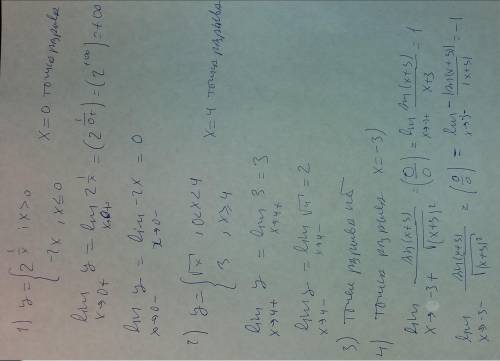 1) y = { 2^(1/x) ; x>0
-2x , x≤0
x=0 точка разрыва
lim x→0+ y = lim x→0+ 2^(1/x) = (2^(1/0+)) = (2^(+∞)) = +∞
lim x→0- y = lim x→0- -2x = 0
2) y = { √x , 0<x<4
3 , x≥4
x=4 точка разрыва
lim x→4+ y = lim x→4+ 3 = 3
lim x→4- y = lim x→4- √4 = 2
3) точек разрыва нет
4) точка разрыва x=-3)
lim x→-3+ sin(x+3)/√(x+3)² = (0/0) = lim x→-3+ sin(x+3)/x+3 = 1
lim x→-3- sin(x+3)/√(x+3)² = (0/0) = lim x→-3- - |sin(x+3)|/|x+3| = -1